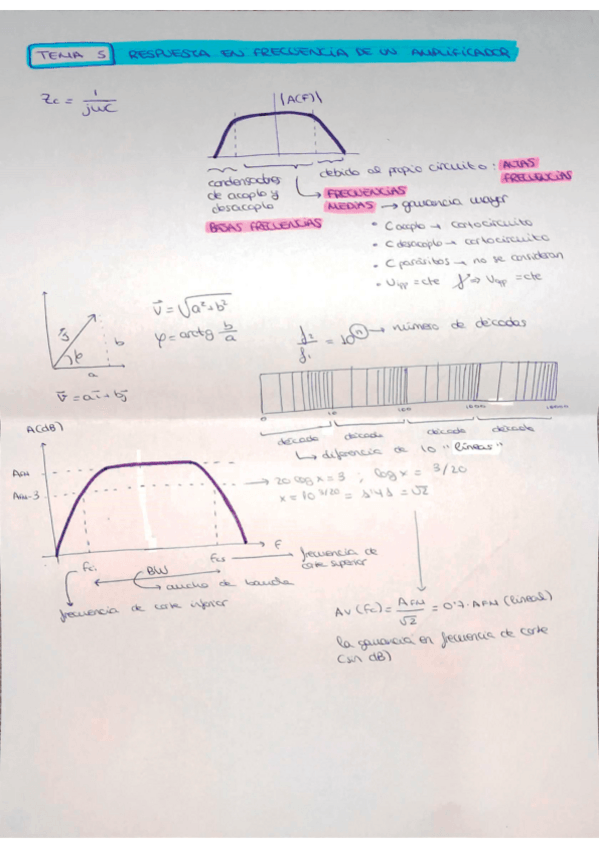 TEMA 5 RESPUESTA EN FRECUENCIA DE UN AMPLIFICADOR
Zc = 1/jωC
|A(F)|
condensadores de acoplo y desacoplo
BAJAS FRECUENCIAS
debido al propio circuito: ALTAS FRECUENCIAS
→ FRECUENCIAS MEDIAS → ganancia mayor
• C acoplo → cortocircuito
• C desacoplo → cortocircuito
• C parásitos → no se consideran
= cte ⇒ = cte
b
φ
a
v⃗ = ai⃗ + bj⃗
v⃗ = √a²+b²
φ = arctg b/a
f2/f1 = 10ⁿ → número de décadas
0 10 100 1000 10000
década década década década
↳ diferencia de 10 "líneas"
A(dB)
AFM
AFM-3
→ 20 log x = 3 ; log x = 3/20
x = 10^3/20 = 1'41 = √2
F
Fci
Fcs
frecuencia de corte superior
BW
→ ancho de banda
frecuencia de corte inferior
AV (Fc) = AFM/√2 = 0'7 · AFM (lineal)
la ganancia en frecuencia de corte
(sin dB)